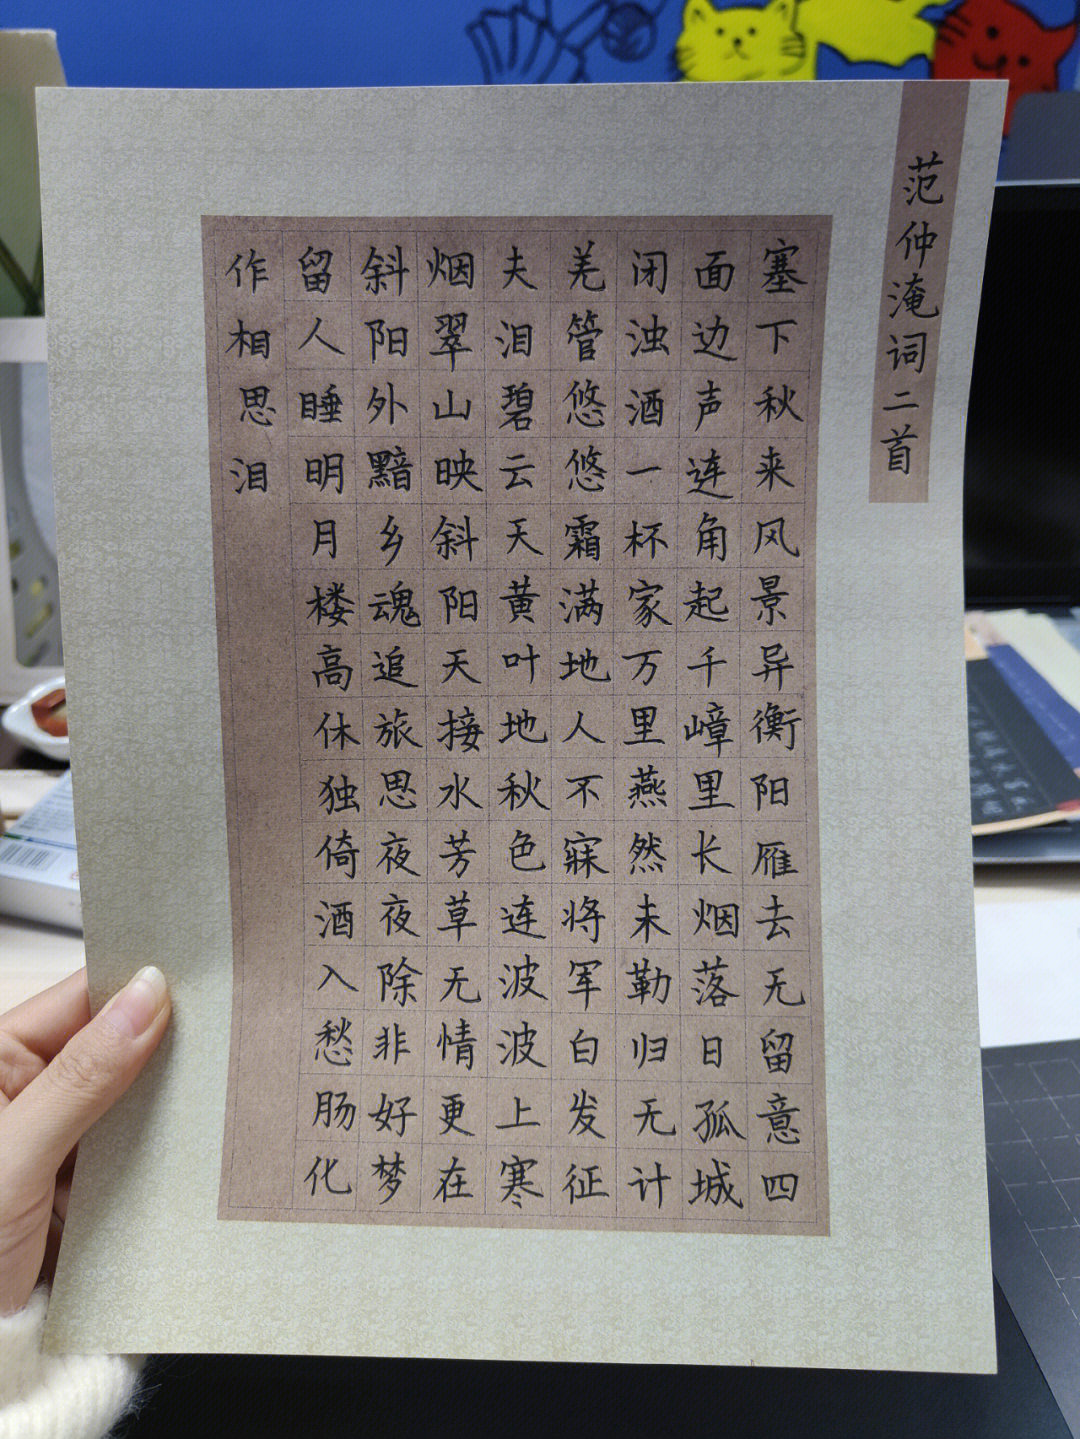 范仲淹词二首
塞下秋来风景异衡阳雁去无留意四
面边声连角起千嶂里长烟落日孤城
闭浊酒一杯家万里燕然未勒归无计
羌管悠悠霜满地人不寐将军白发征
夫泪碧云天黄叶地秋色连波波上寒
烟翠山映斜阳天接水芳草无情更在
斜阳外黯乡魂追旅思夜夜除非好梦
留人睡明月楼高休独倚酒入愁肠化
作相思泪